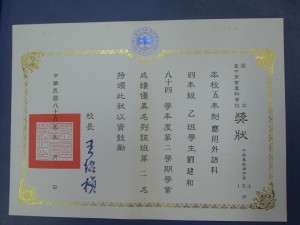 國立
臺中商業專科學校
獎狀
本校五年制應用外語科
四年級乙班學生劉建和
八十四學年度第二學期學業
成績優異名列該班第二名
特頒此狀以資鼓勵
校長
中華民國八十五年
月
日